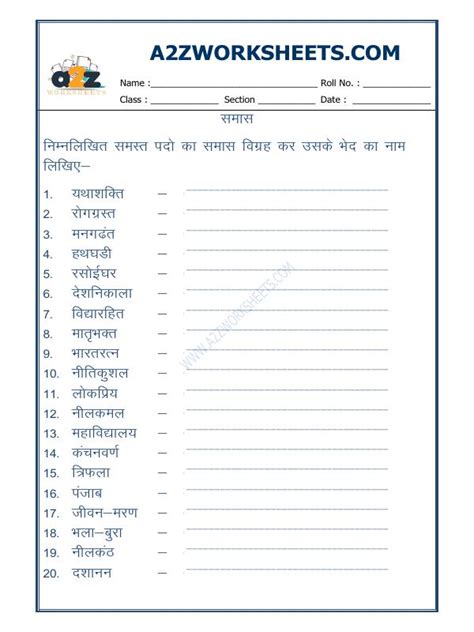 A2ZWORKSHEETS.COM
a2z
WORKSHEETS
Name : Roll No. :
Class : Section Date :
समास
निम्नलिखित समस्त पदो का समास विग्रह कर उसके भेद का नाम
लिखिए–
1. यथाशक्ति –
2. रोगग्रस्त –
3. मनगढंत –
4. हथघडी –
5. रसोईघर –
6. देशनिकाला –
7. विद्यारहित –
8. मातृभक्त –
9. भारतरत्न –
10. नीतिकुशल –
11. लोकप्रिय –
12. नीलकमल –
13. महाविद्यालय –
14. कंचनवर्ण –
15. त्रिफला –
16. पंजाब –
17. जीवन-मरण –
18. भला-बुरा –
19. नीलकंठ –
20. दशानन –
WWW.A2ZWORKSHEETS.COM